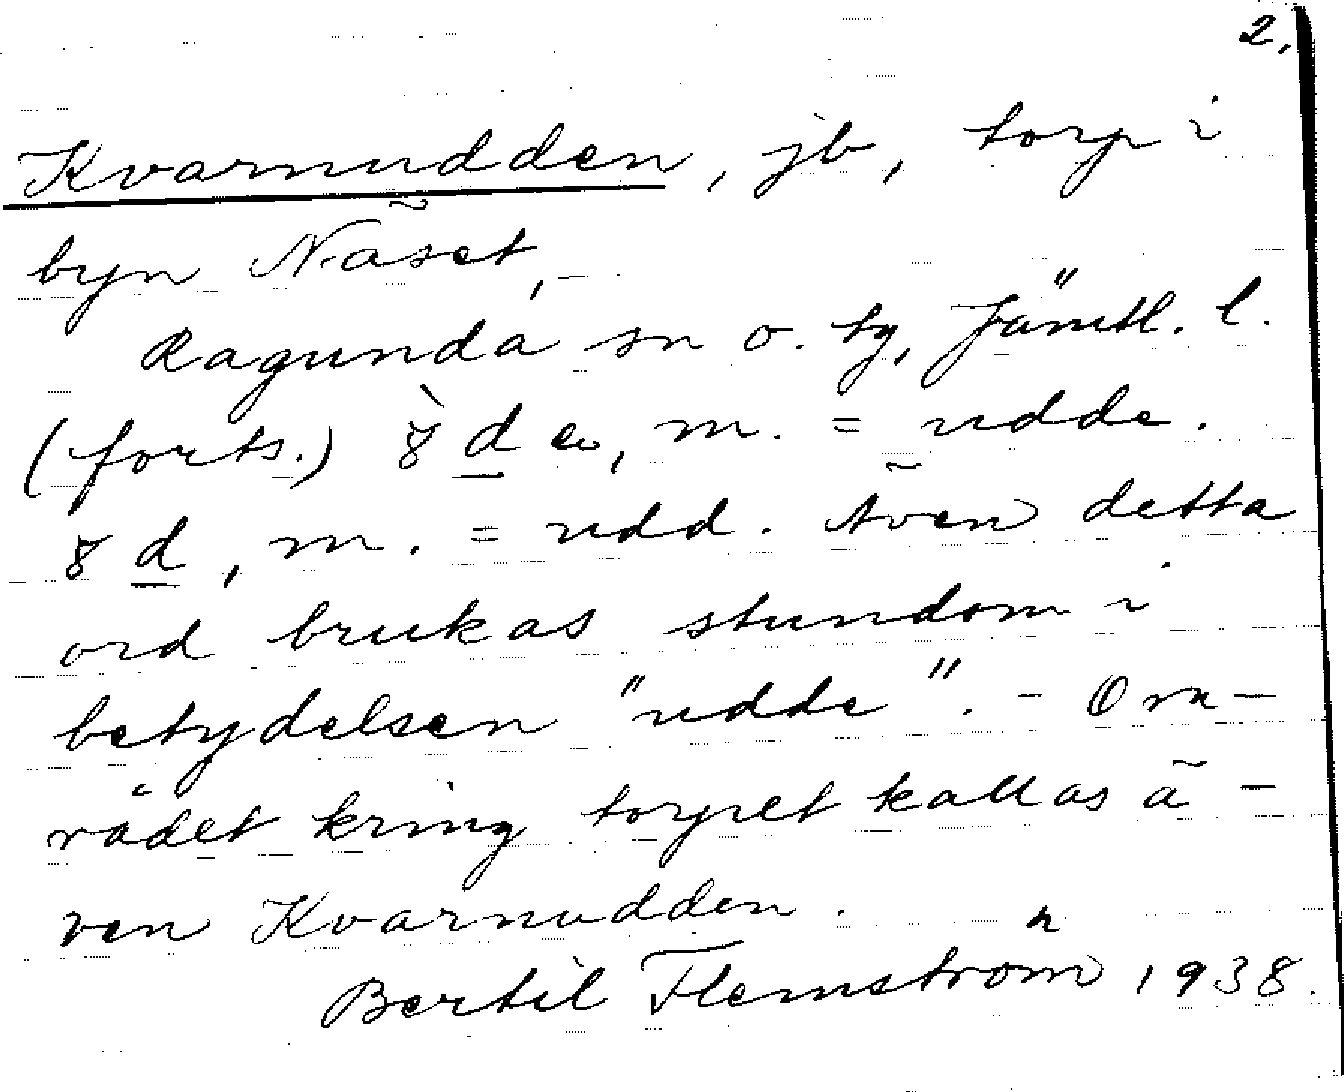 2.
Kvarnudden, jb, torp i
byn Näset,
Ragunda sn o. tg, Jämtl. l.
(forts.) m. = udde.
m. = udd. Även detta
ord brukas stundom i
betydelsen "udde". - Om-
rådet kring torpet kallas ä-
ven Kvarnudden.
Bertil Flemström 1938.